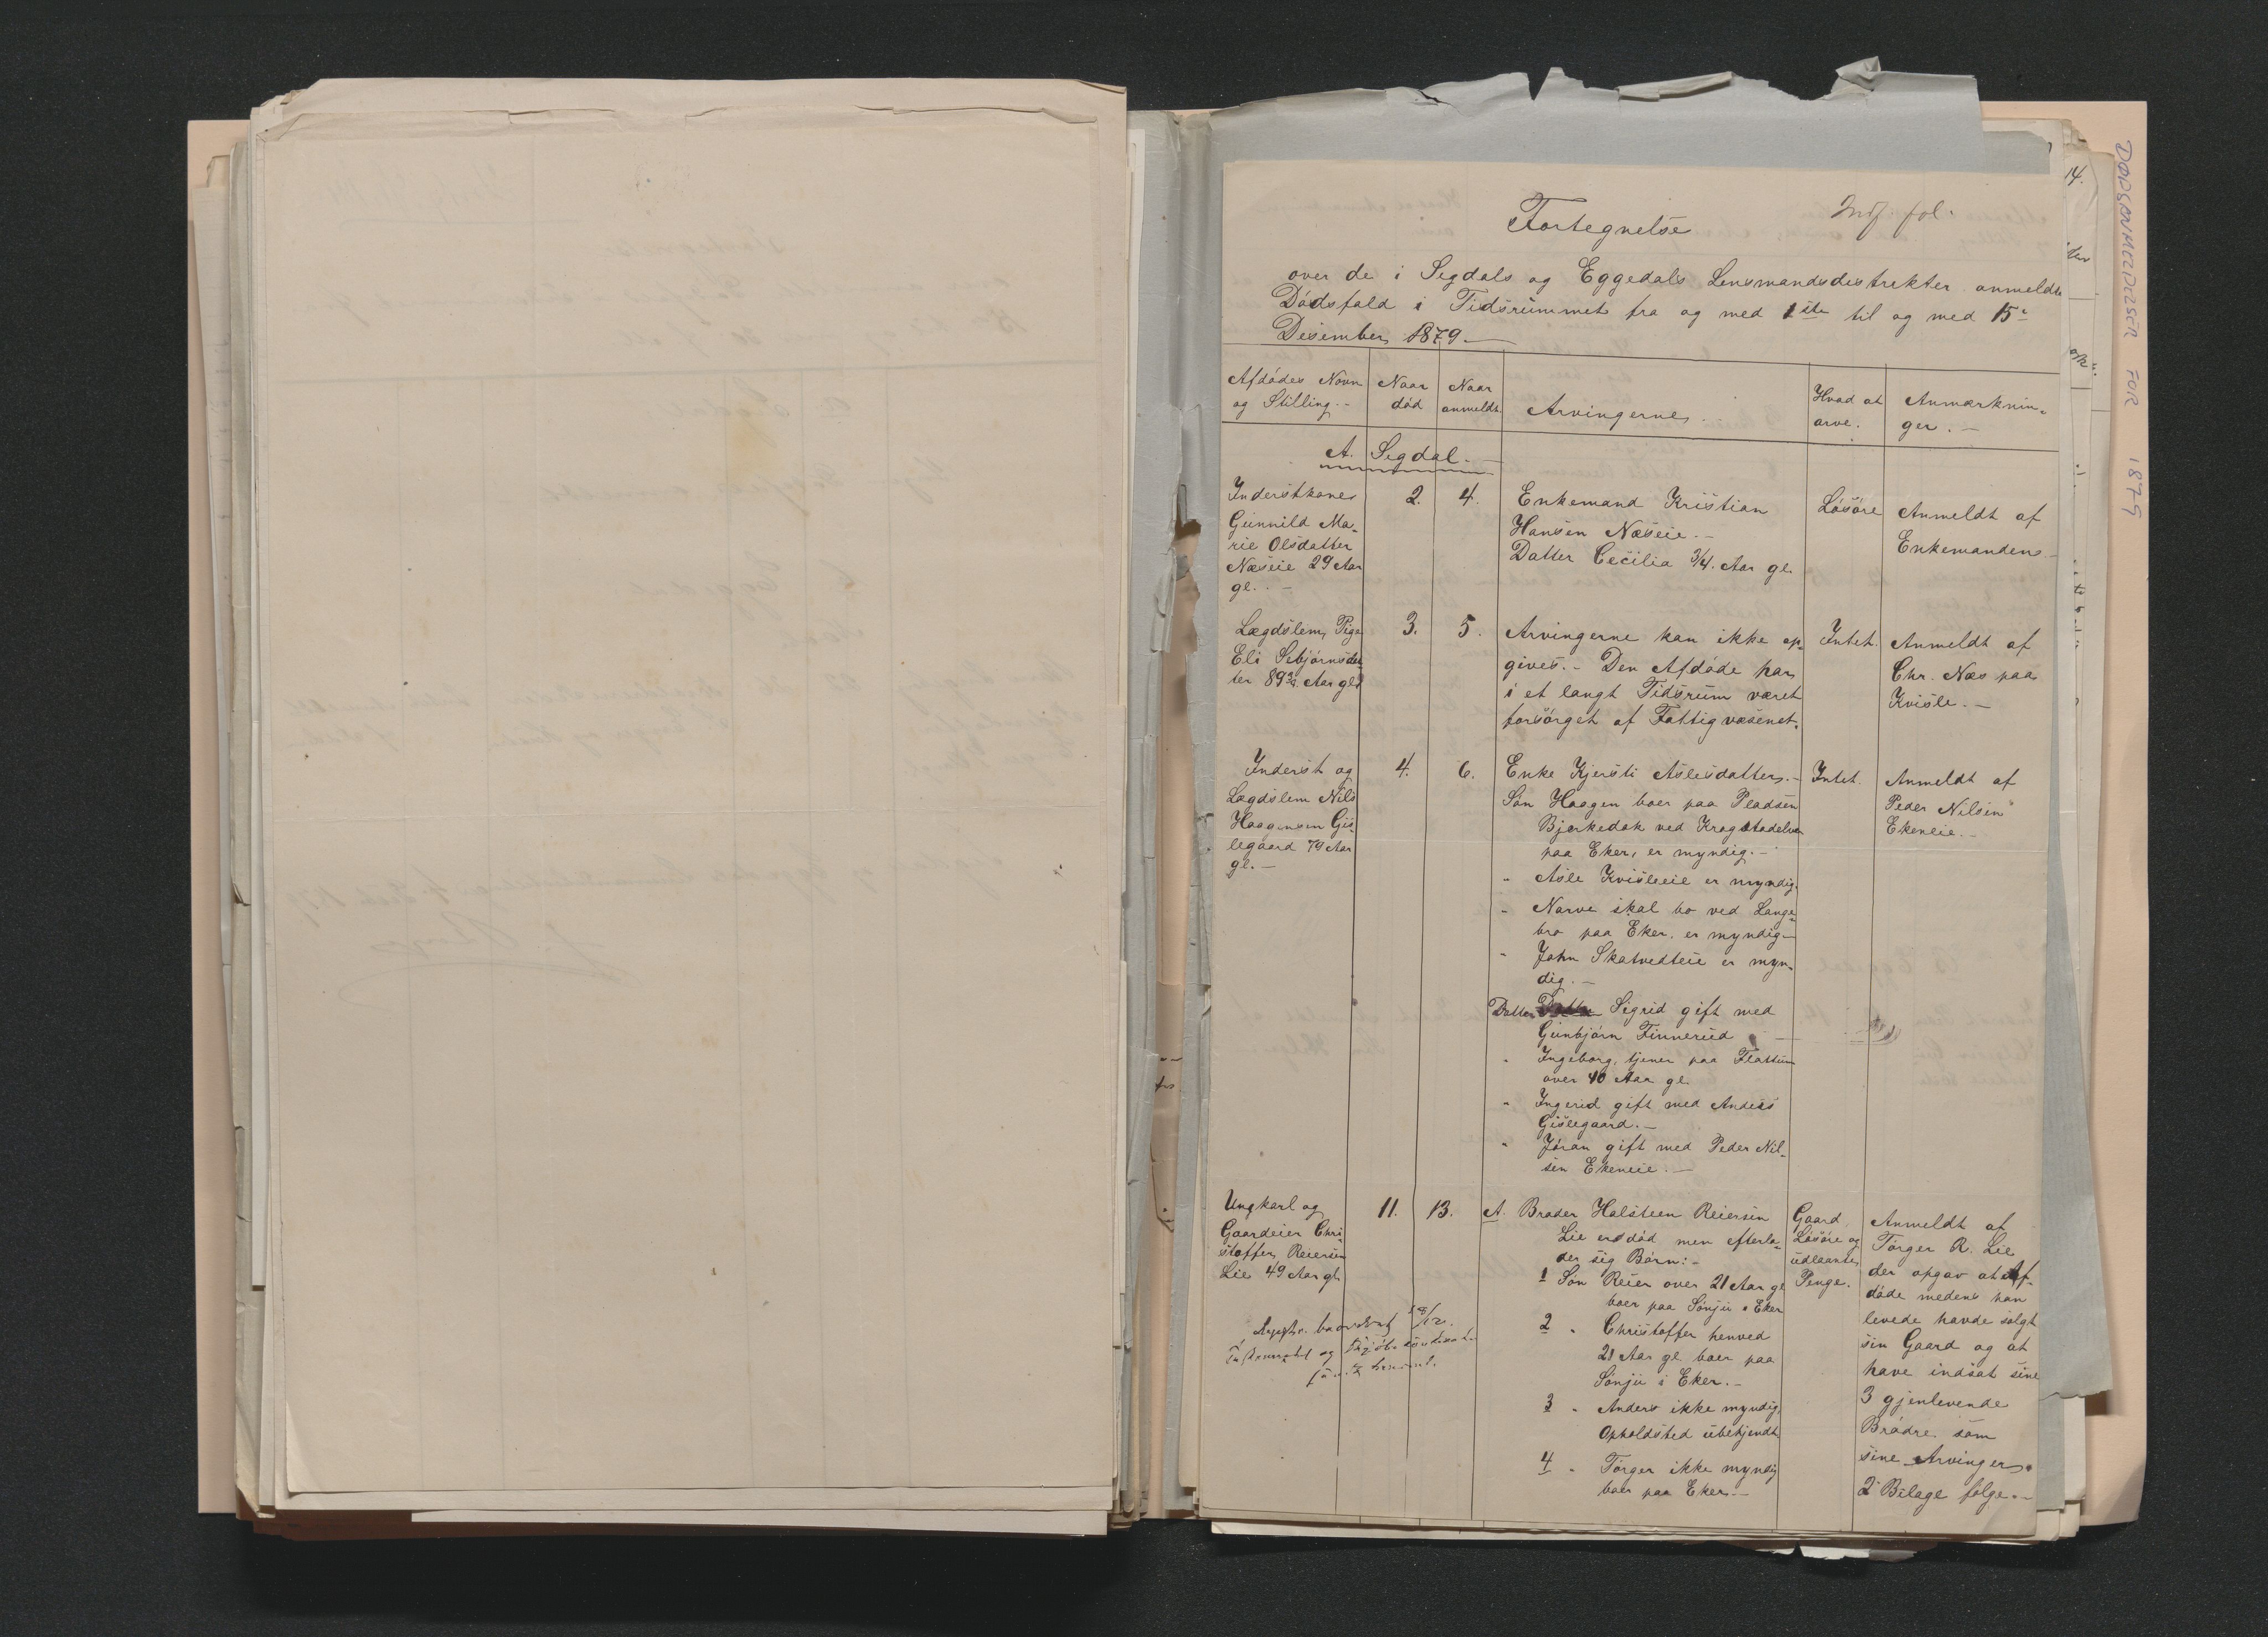 DØDSANMELDELSER FOR 1879
14.
Indf. fol.
Fortegnelse
over de i Segdals og Eggedals Lensmandsdistrekter anmeldte
Dødsfald i Tidsrummet fra og med 1ste til og med 15de
Desember 1879.
Afdødes Navn og Stilling. Naar død Naar anmeldt. Arvingerne Hvad at arve. Anmærkninger.
A. Segdal.
Inderstkone
Gunnild Ma-
rie Olsdatter
Næseie 29 Aar
gl.
2. 4.
Enkemand Kristian
Hansen Næseie.
Datter Cecilia 3/4. Aar gl.
Løsøre
Anmeldt af
Enkemanden.
Lægdslem, Pige
Eli Sebjørnsdat-
ter 89 3/4 Aar gl.
3. 5.
Arvingerne kan ikke op-
gives. Den Afdøde har
i et langt Tidsrum været
forsørget af Fattigvæsenet.
Intet.
Anmeldt af
Chr. Næs paa
Kvisle.
Inderst og
Lægdslem Nils
Haagensen Gis-
legaard 79 Aar
gl.
4. 6.
Enke Kjersti Aslesdatter.
Søn Haagen boer paa Pladsen
Bjerkedok ved Kragstadelven
paa Eker, er myndig.
" Asle Kvisleeie er myndig.
" Narve skal bo ved Lange-
bro paa Eker, er myndig
" John Skatvedteie er myn-
dig.
Datter Sigrid gift med
Gunbjørn Finnerud
" Ingeborg, tjener paa Flattum
over 40 Aar gl.
" Ingerid gift med Anders
Gislegaard.
" Jøran gift med Peder Nil-
sen Ekeneie.
Intet.
Anmeldt af
Peder Nilsen
Ekeneie.
Ungkarl og
Gaardeier Chri-
stoffer Reiersen
Lie 49 Aar gl.
11. 13.
A. Broder Halsteen Reiersen
Lie er død men efterla-
der sig Børn:
1 Søn Reier over 21 Aar gl
boer paa Sønju i Eker
2 " Christoffer henved
21 Aar gl. boer paa
Sønju i Eker.
3 " Anders ikke myndig,
Opholdsted ubekjendt
4 " Torger ikke myndig
boer paa Eker.
Gaard,
Løsøre og
udlaante
Penge.
Anmeldt af
Torger R. Lie
der opgav at Af-
døde medens han
levede havde solgt
sin Gaard og at
have indsat sine
3 gjenlevende
Brødre som
sine Arvinger.
2 Bilage følge.
18/12.
og Skjøde